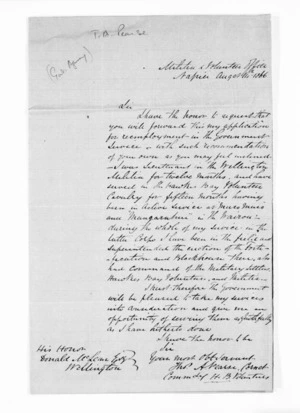 T. A. Pearse
Militia & Volunteer Office
Napier August 1866
Sir
I have the honor to request that
you will forward this my application
for reemployment in the Government
Service with such recommendations
of your own as you may feel inclined
I was Lieutenant in the Wellington
Militia for twelve months, and have
served in the Hawkes Bay Volunteer
Cavalry for fifteen months having
been in active service at
and in the
during the whole of my service in the
latter Corps I have been in the field and
superintended the erection of the
and Blockhouse there, also
had command of the Military Settlers
Hawkes Bay Volunteers, and Militia.
I trust therefore the government
will be pleased to take my services
into consideration and give me an
opportunity of serving them as
as I have hitherto done
I have the honor to be
Sir
Your most Obt Servant
Thos A Pearse Cornet
H. B. Volunteers
His Honor
Donald McLean Esq
Wellington